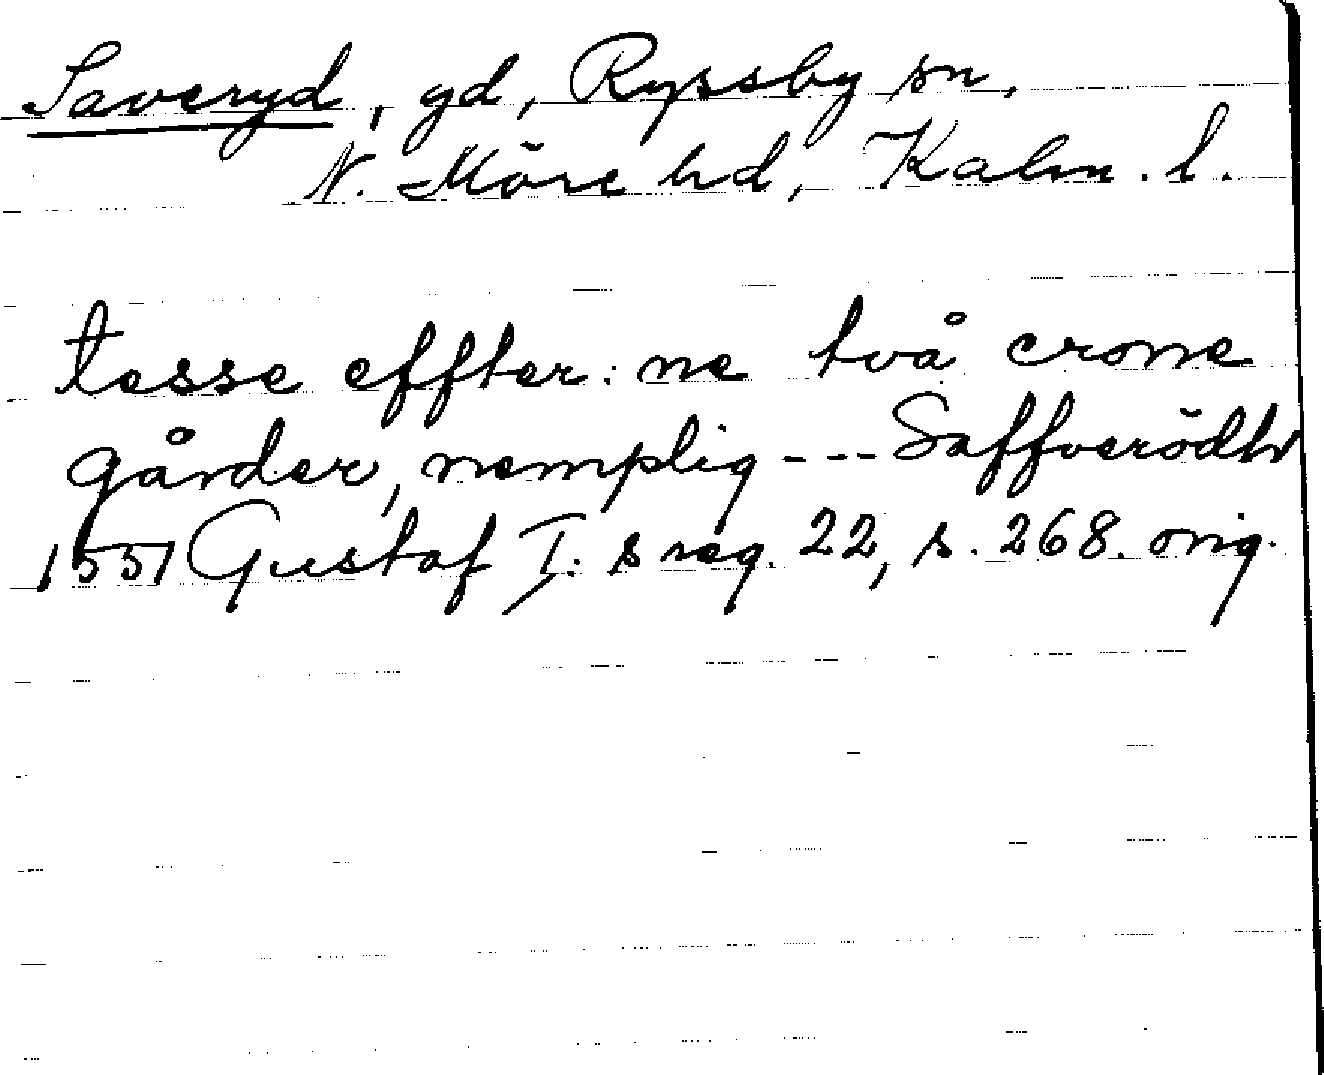 Saveryd, gd, Ryssby sn,
N. Möre hd, Kalm. l.
tesse effter: ne två crone
gårder, nemplig --- Saffverödh
1551 Gustaf I:s reg. 22, s. 268. orig.